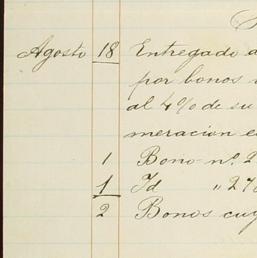 Agosto 18 Entregado a
por bonos
al 4% de su
meracion e
1 Bono nº 2
1 Id " 27
2 Bonos cuy